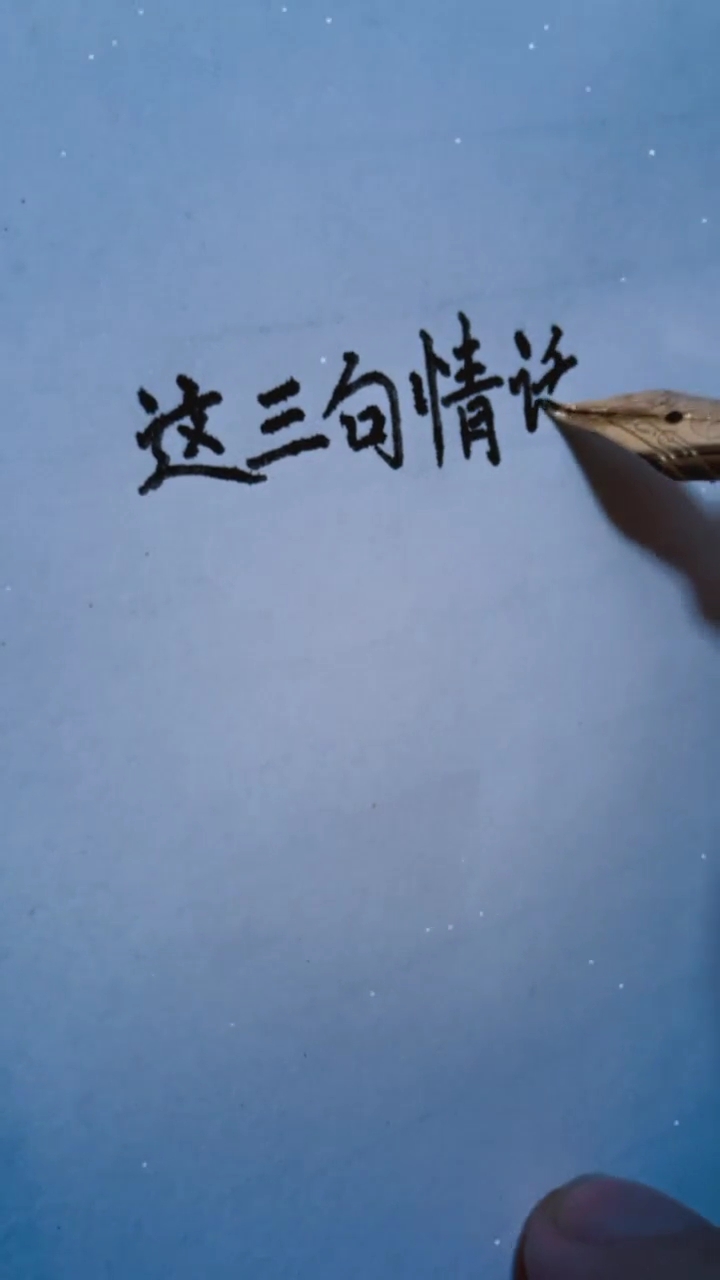 这三句情话